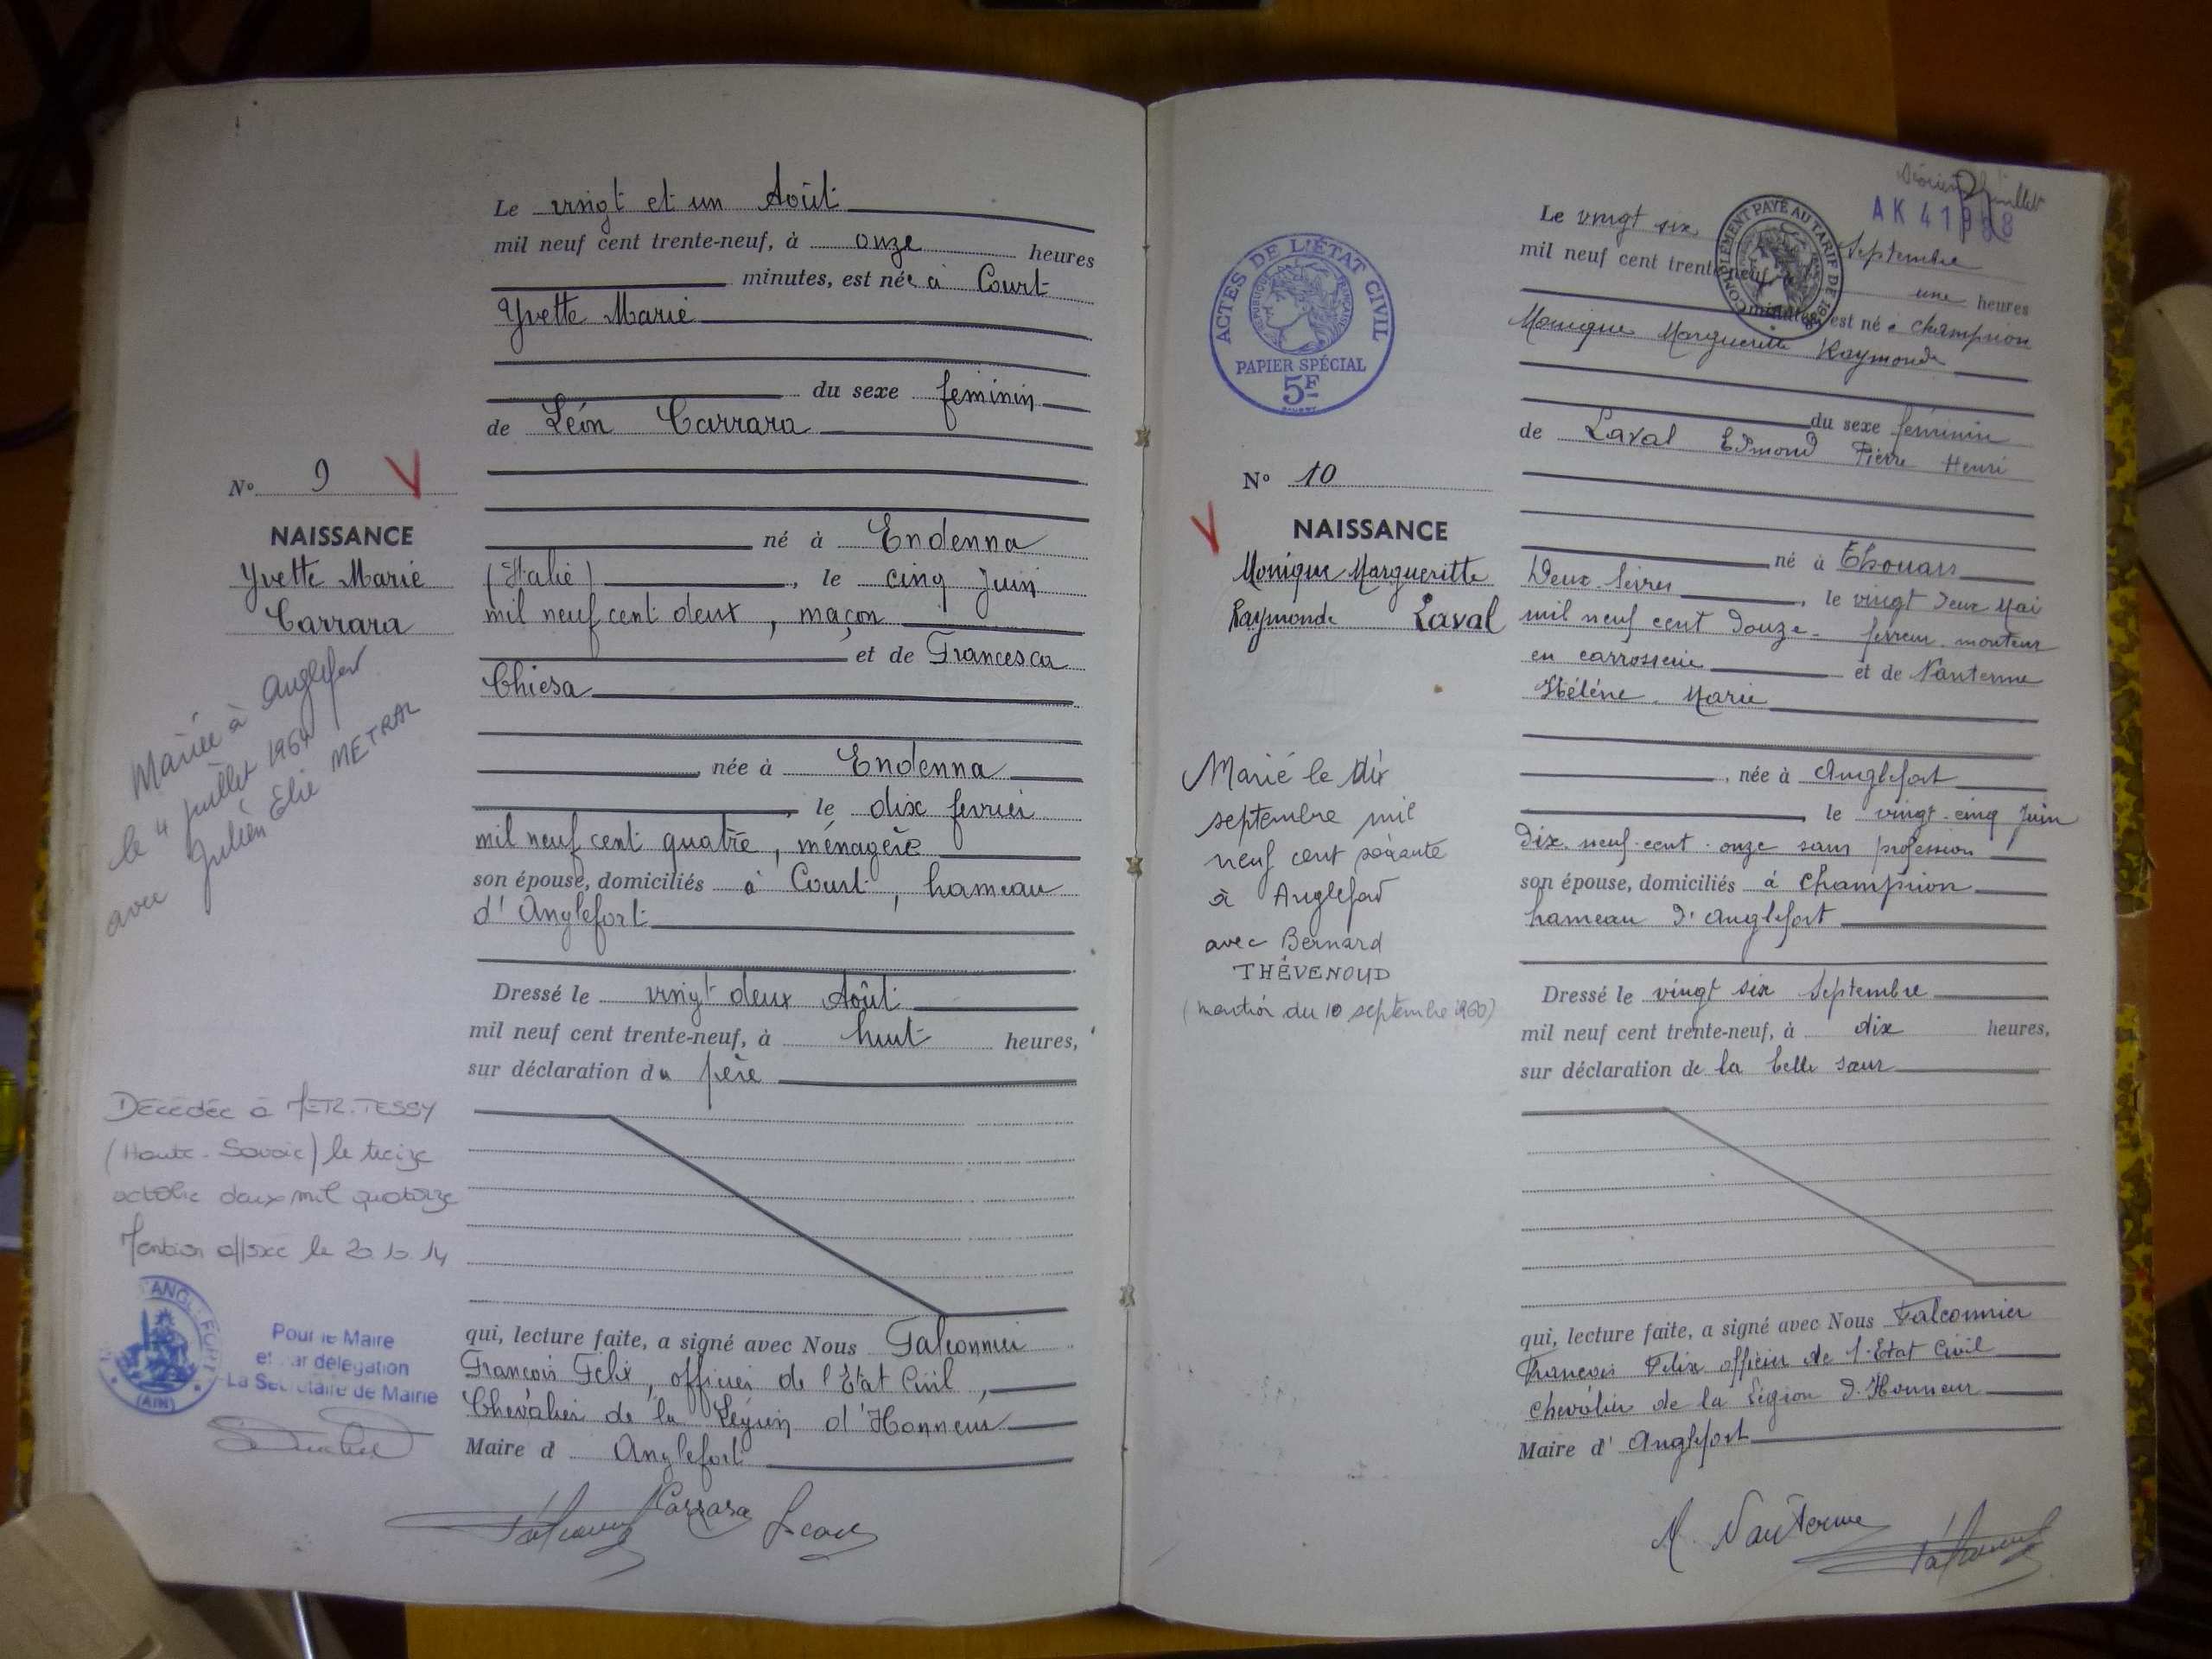 Le vingt et un Août
mil neuf cent trente-neuf, à onze heures
minutes, est née à Court
Yvette Marie
du sexe féminin
de Léon Carrara
né à Endenna
(Italie), le cinq Juin
mil neuf cent deux, maçon
et de Francesca
Chiesa
née à Endenna
le dix fevrier
mil neuf cent quatre, ménagère
son épouse, domiciliés à Court, hameau
d'Anglefort
Dressé le vingt deux Août
mil neuf cent trente-neuf, à huit heures,
sur déclaration du père
qui, lecture faite, a signé avec Nous Falconnier
François Félix, officier de l'Etat Civil,
Chevalier de la Légion d'Honneur
Maire d Anglefort
Carrara Leon
N° 9 V
NAISSANCE
Yvette Marie
Carrara
Mariée à Anglefort
le 4 juillet 1964
avec Julien Elie METRAL
Décédée à METZ-TESSY
(Haute-Savoie) le treize
octobre deux mil quatorze
Mention apposée le 20.10.14
ANGLEFORT
(AIN)
Pour le Maire
et par délégation
La Secrétaire de Mairie
AK 41
COMPLÉMENT PAYÉ AU TARIF DE
ACTES DE L'ÉTAT CIVIL
RÉPUBLIQUE FRANÇAISE
PAPIER SPÉCIAL
5F
Le vingt six Septembre
mil neuf cent trente-neuf une heures
minutes, est né à Champrion
Monique Margueritte Raymonde
du sexe féminin
de Laval Edmond Pierre Henri
né à Thouars
Deux-Sèvres, le vingt deux Mai
mil neuf cent douze - ferreur-monteur
en carrosserie et de Nanterme
Hélène-Marie
, née à Anglefort
le vingt-cinq Juin
dix-neuf-cent-onze sans profession
son épouse, domiciliés à Champrion
hameau d'Anglefort
Dressé le vingt six Septembre
mil neuf cent trente-neuf, à dix heures,
sur déclaration de la belle sœur
qui, lecture faite, a signé avec Nous Falconnier
François Félix officier de l'Etat Civil
Chevalier de la Légion d'Honneur
Maire d'Anglefort
M. Nanterme
N° 10
V
NAISSANCE
Monique Margueritte
Raymonde Laval
Marié le dix
septembre mil
neuf cent soixante
à Anglefort
avec Bernard
THÉVENOUD
(mention du 10 septembre 1960)